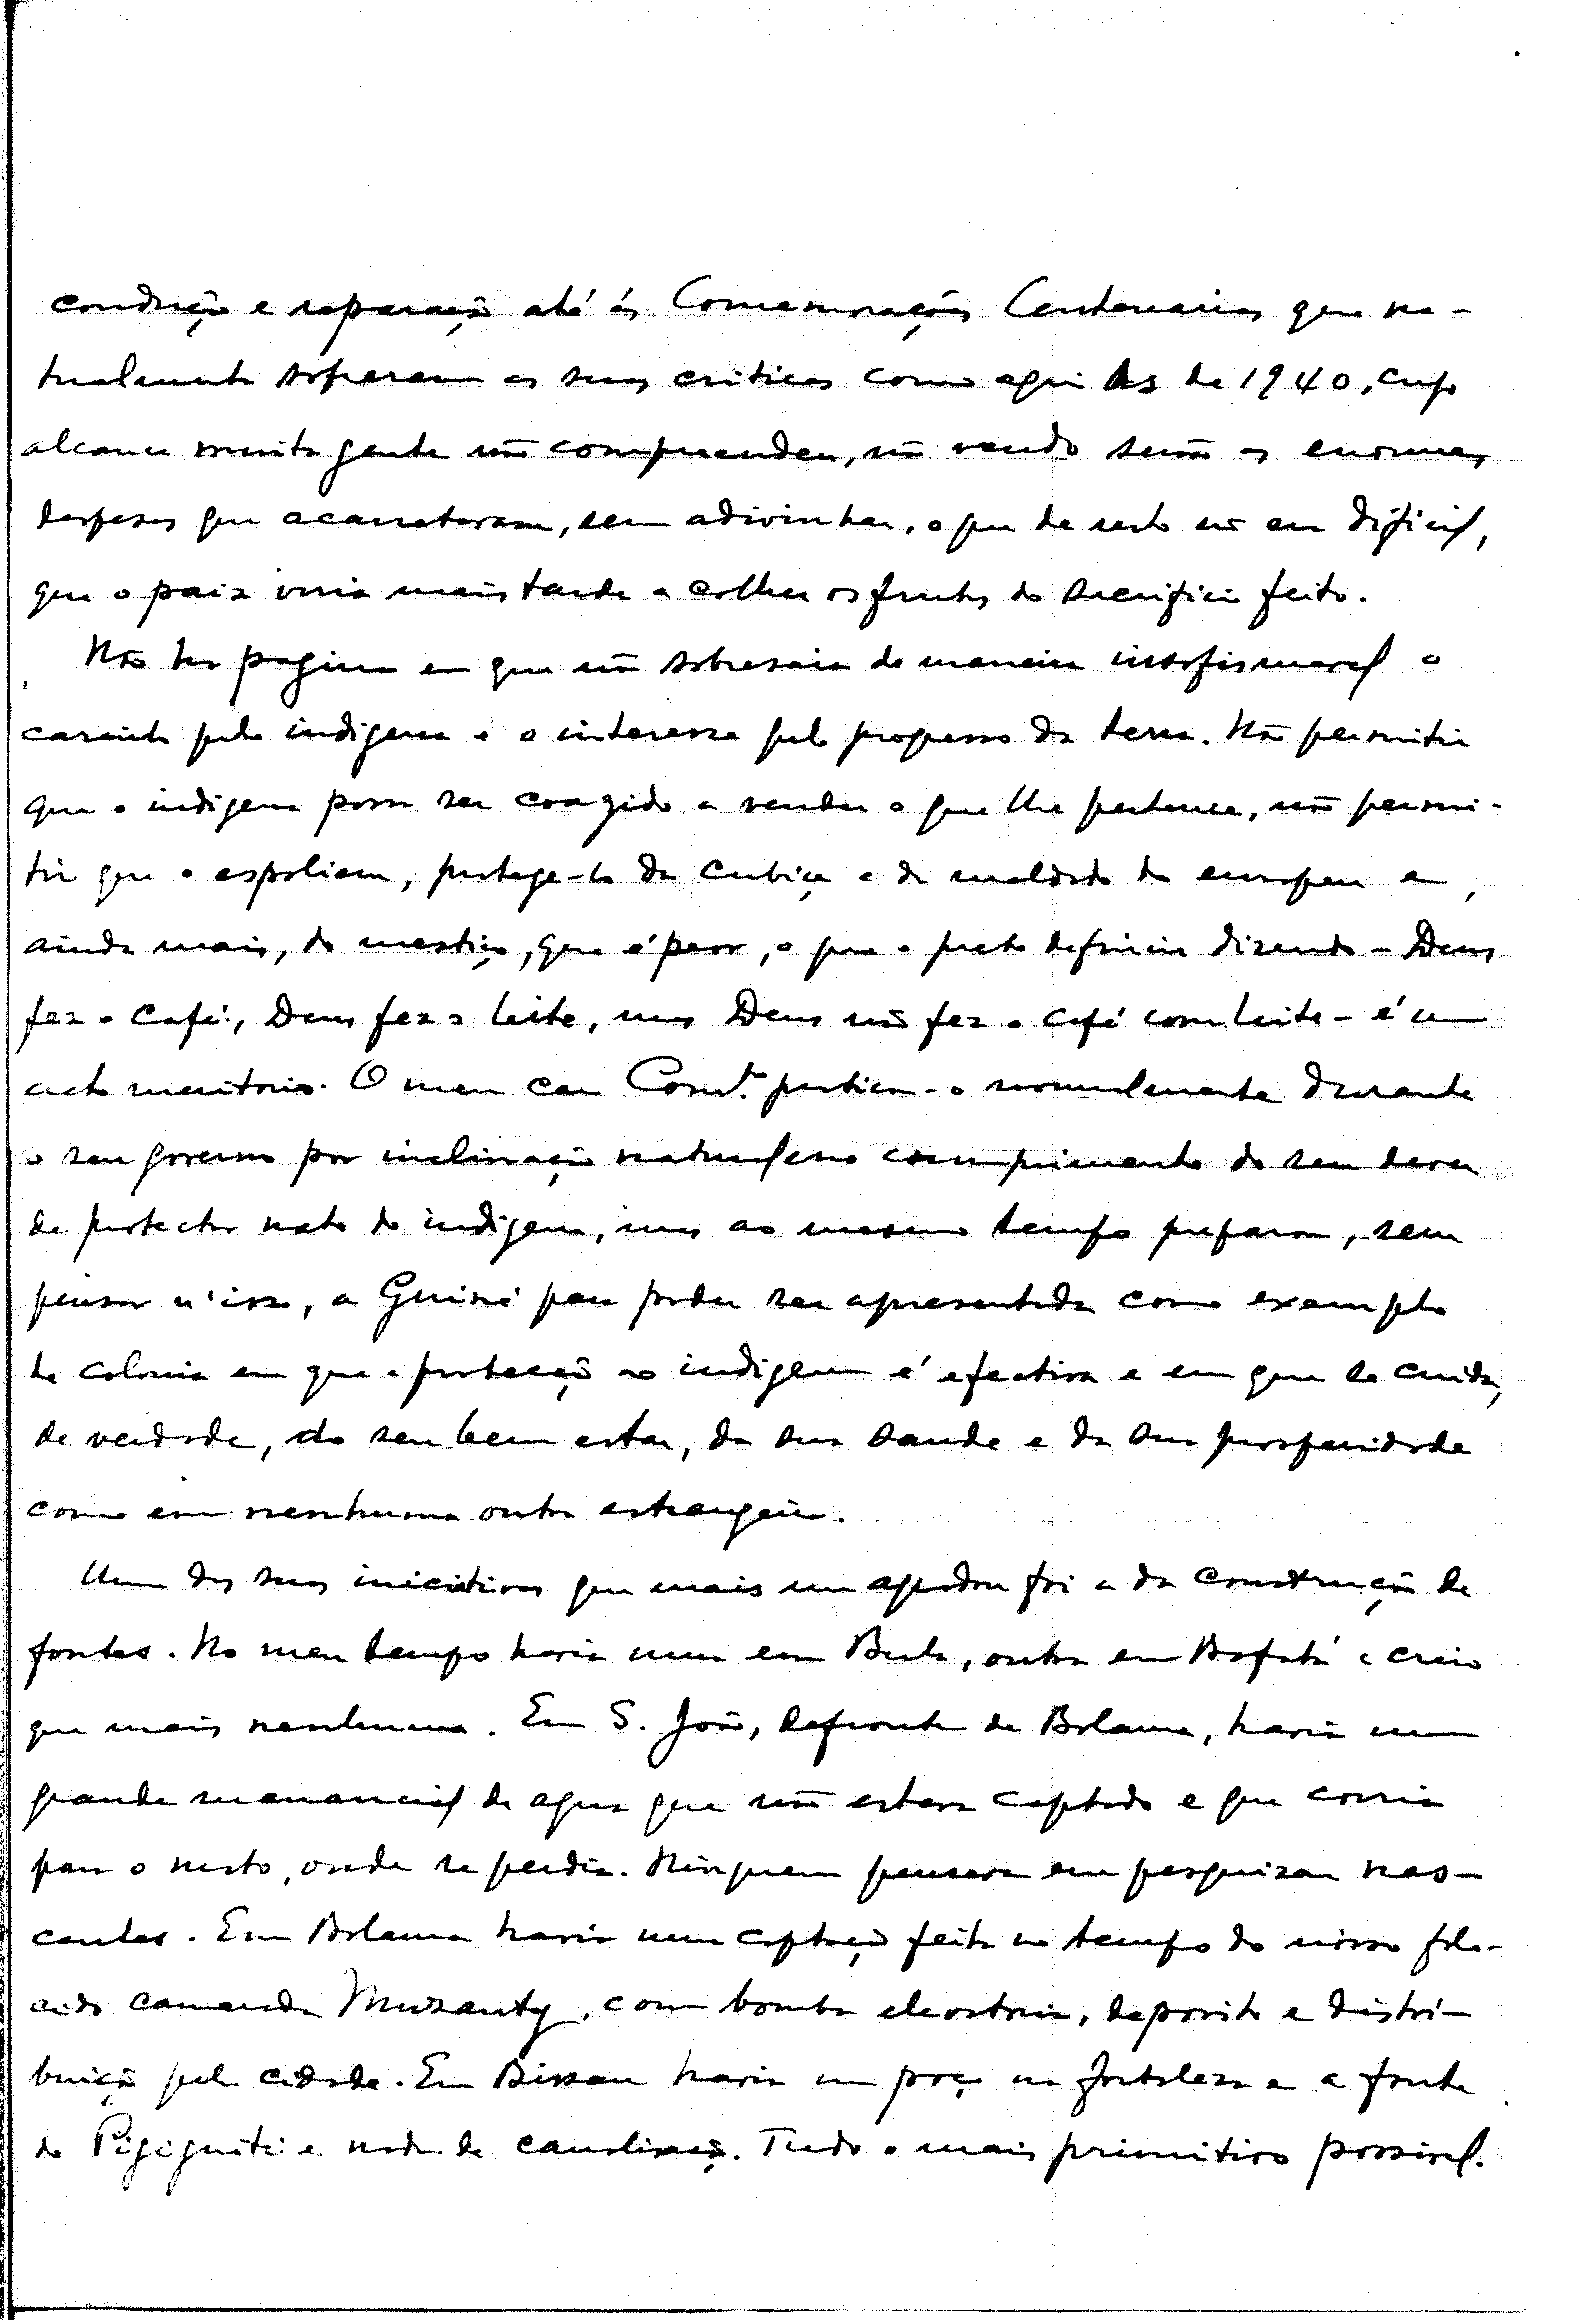 condução e reparação até ás Comemorações Centenarias que na-
turalmente sofreram as suas criticas como aqui as de 1940, cujo
alcance muita gente não compreendeu, não vendo senão as enormes
despesas que acarretaram, sem adivinhar, o que de resto não era dificil,
que o paiz viria mais tarde a colher os frutos do sacrificio feito.
Não ha pagina em que não sobresaia de maneira insofismavel o
carinho pelo indigena e o interesse pelo progresso da terra. Não permitir
que o indigena possa ser coagido a vender o que lhe pertence, não permi-
tir que o espoliem, protege-lo da cubiça e da maldade do europeu e,
ainda mais, do mestiço, que é peor, o que o preto definia dizendo - Deus
fez o café, Deus fez o leite, mas Deus não fez o café com leite - é um
acto meritorio. O meu caro Comd.te praticou-o normalmente durante
o seu governo por inclinação natural e no cumprimento do seu dever
de protector nato do indigena, mas ao mesmo tempo preparou, sem
pensar n'isso, a Guiné para poder ser apresentada como exemplo
de colonia em que a protecção ao indigena é efectiva e em que se cuida,
de verdade, do seu bem estar, da sua saude e da sua prosperidade
como em nenhuma outra estrangeira.
Uma das suas iniciativas que mais me agradou foi a da construção de
fontes. No meu tempo havia uma em Bula, outra em Bafatá e creio
que mais nenhuma. Em S. João, defronte de Bolama, havia um
grande manancial de agua que não estava captado e que corria
para o mato, onde se perdia. Ninguem pensava em pesquizar nas-
centes. Em Bolama havia uma captação feita no tempo do nosso fale-
cido camarada Muzanty, com bomba electrica, deposito e distri-
buição pela cidade. Em Bissau havia um poço na fortaleza e a fonte
do Pigiguiti e nada de canalisação. Tudo o mais primitivo possivel.